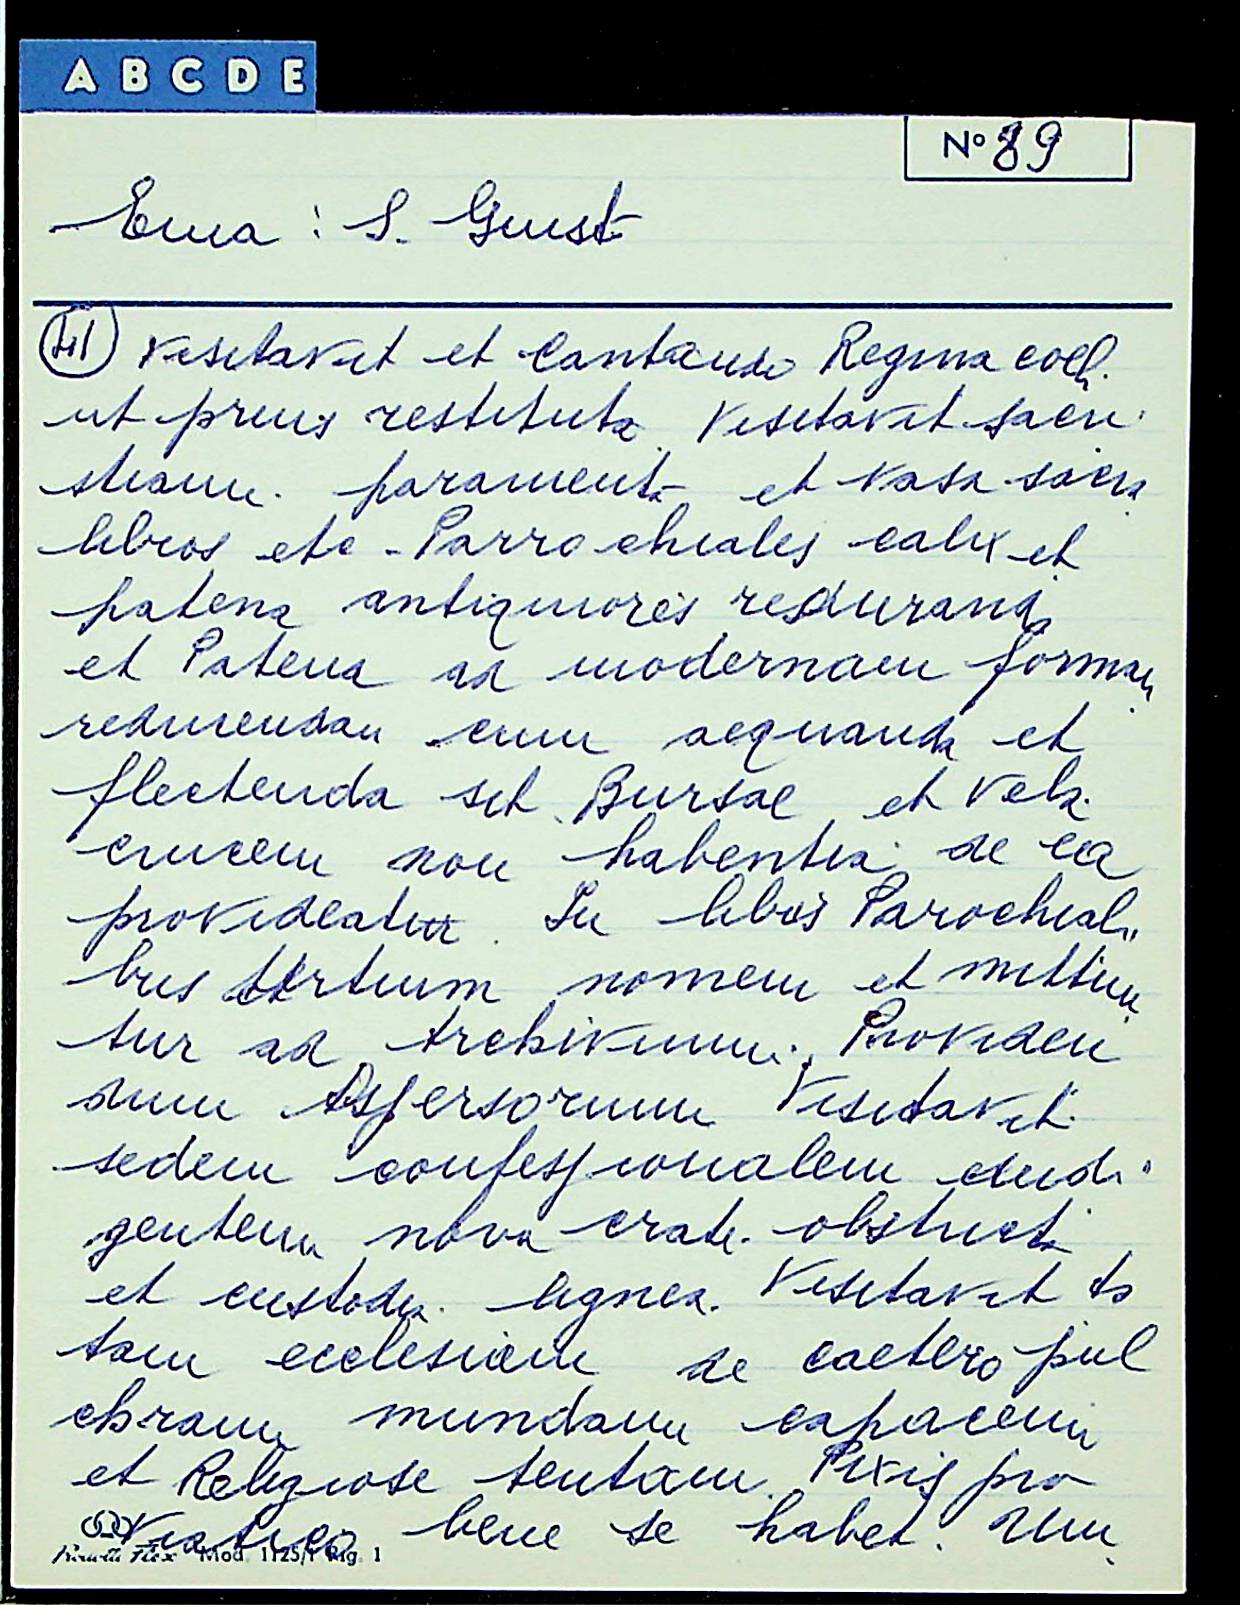 A B C D E
Nº 89
Ema : S. Giust
visitavit et cantando Regina coeli
ut prius restituta. Visitavit sacri
stiam. paramenta et vasa sacra
libros etc - Parrochiales calix et
patena antiquioris redurand
et Patena ad modernam formam
reducendam cum aequanda et
flectenda sit. Bursae et vela
crucem non habentia de ea
provideatur. In libris Parochiali,,
bus tertium nomen et mittun
tur ad Archivium. Providen
dum Aspersorium Visitavit
sedem confessionalem indi
gentem nova crate obstructa
et custodia lignea. Visitavit to
tam ecclesiam de caetero pul
chram mundam capacem
et Religiose tentam. Pixis pro
Viatico bene se habet. Um
Mod. 1125/1 Rig. 1